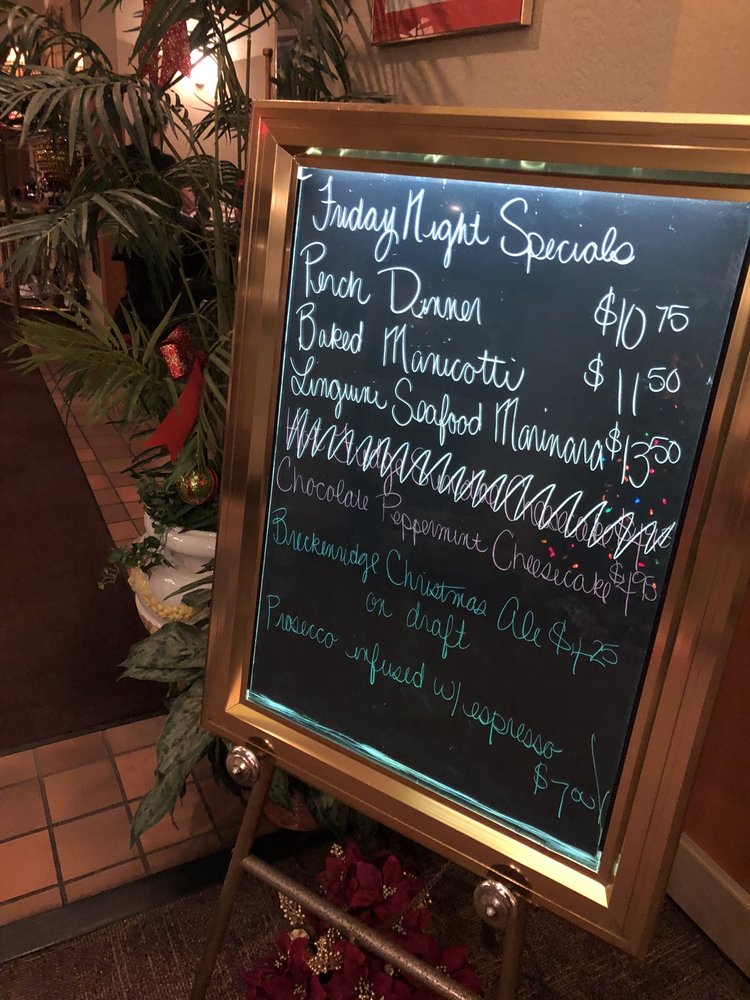 Friday Night Specials
Perch Dinner $10 75
Baked Manicotti $11 50
Linguini Seafood Marinara $13 50
Chocolate Peppermint Cheesecake $4.95
Breckenridge Christmas Ale $4.25
on draft
Prosecco infused w/ espresso
$7.00